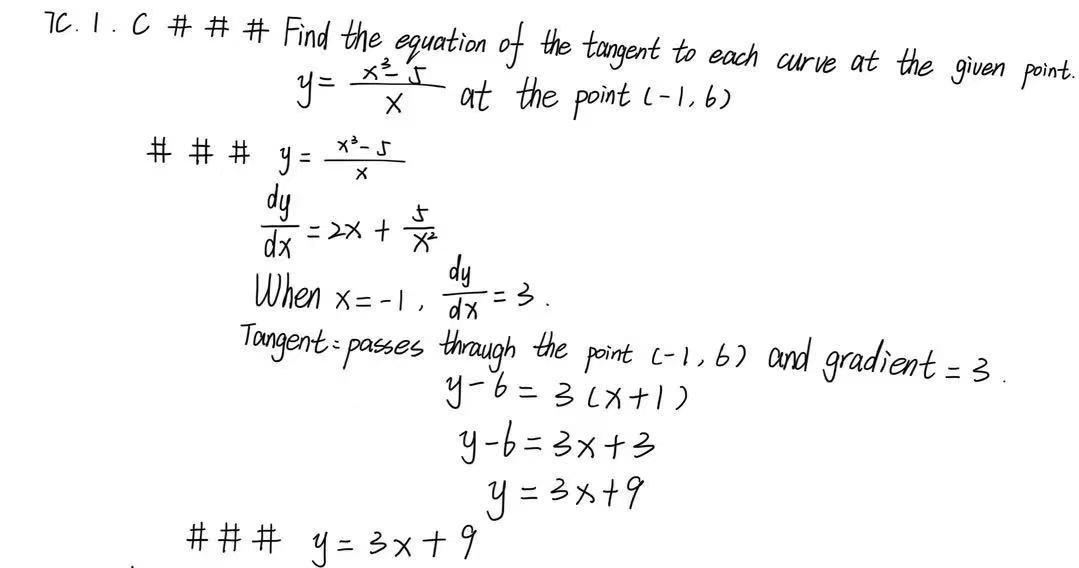 7C. 1. C # # # Find the equation of the tangent to each curve at the given point.
y = \frac{x^3 - 5}{x} at the point (-1, 6)
# # # y = \frac{x^3 - 5}{x}
\frac{dy}{dx} = 2x + \frac{5}{x^2}
When x = -1, \frac{dy}{dx} = 3.
Tangent: passes through the point (-1, 6) and gradient = 3.
y - 6 = 3(x + 1)
y - 6 = 3x + 3
y = 3x + 9
# # # y = 3x + 9